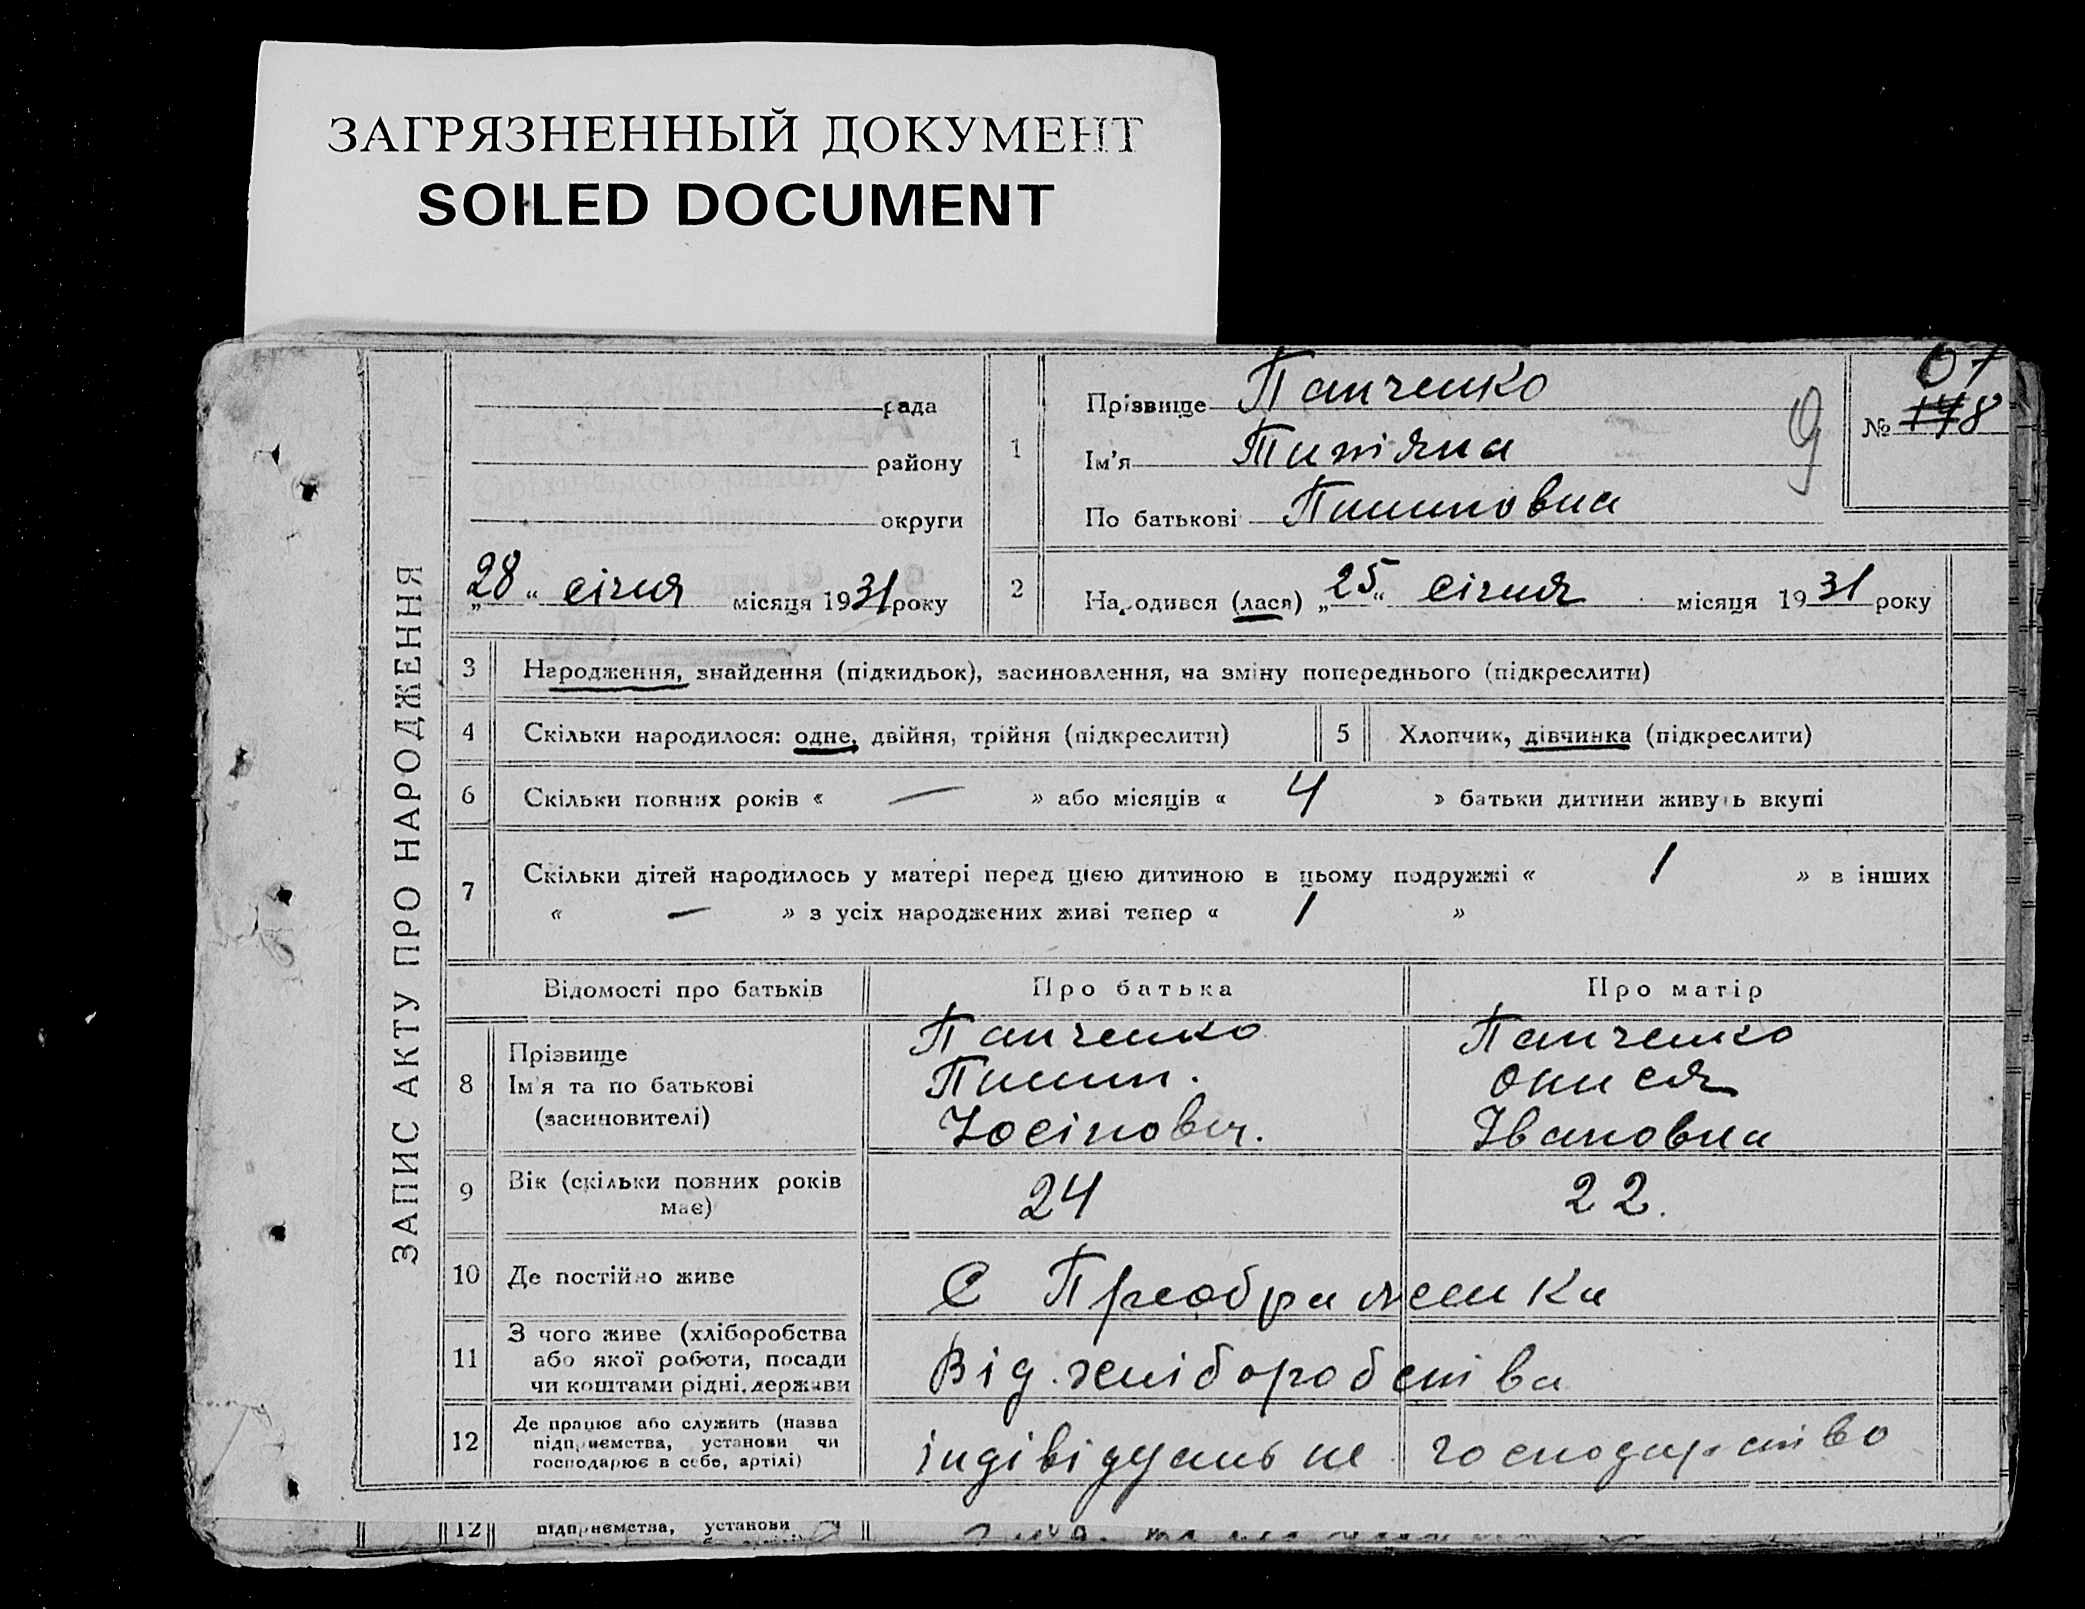 ЗАГРЯЗНЕННЫЙ ДОКУМЕНТ
SOILED DOCUMENT
ЗАПИС АКТУ ПРО НАРОДЖЕННЯ
рада
району
округи
„28“ січня місяця 1931 року
1
Прізвище Панченко
Ім'я Титяна
По батькові Пилиповна
№ 148
2
Народився (лася) „25“ січня місяця 1931 року
3 Народження, знайдення (підкидьок), засиновлення, на зміну попереднього (підкреслити)
4 Скільки народилося: одне, двійня, трійня (підкреслити) 5 Хлопчик, дівчинка (підкреслити)
6 Скільки повних років « — » або місяців « 4 » батьки дитини живуть вкупі
7 Скільки дітей народилось у матері перед цією дитиною в цьому подружжі « 1 » в інших
« — » з усіх народжених живі тепер « 1 »
Відомості про батьків Про батька Про матір
8 Прізвище Панченко Панченко
Ім'я та по батькові Пилип. Онися
(засиновителі) Йосіпович. Івановна
9 Вік (скільки повних років має) 24 22.
10 Де постійно живе С Преображенка
11 З чого живе (хліборобства
або якої роботи, посади
чи коштами рідні, держави Від хліборобства
12 Де працює або служить (назва
підприємства, установи чи
господарює в себе, артілі) індівідуальне господарство
12 підприємства, установи